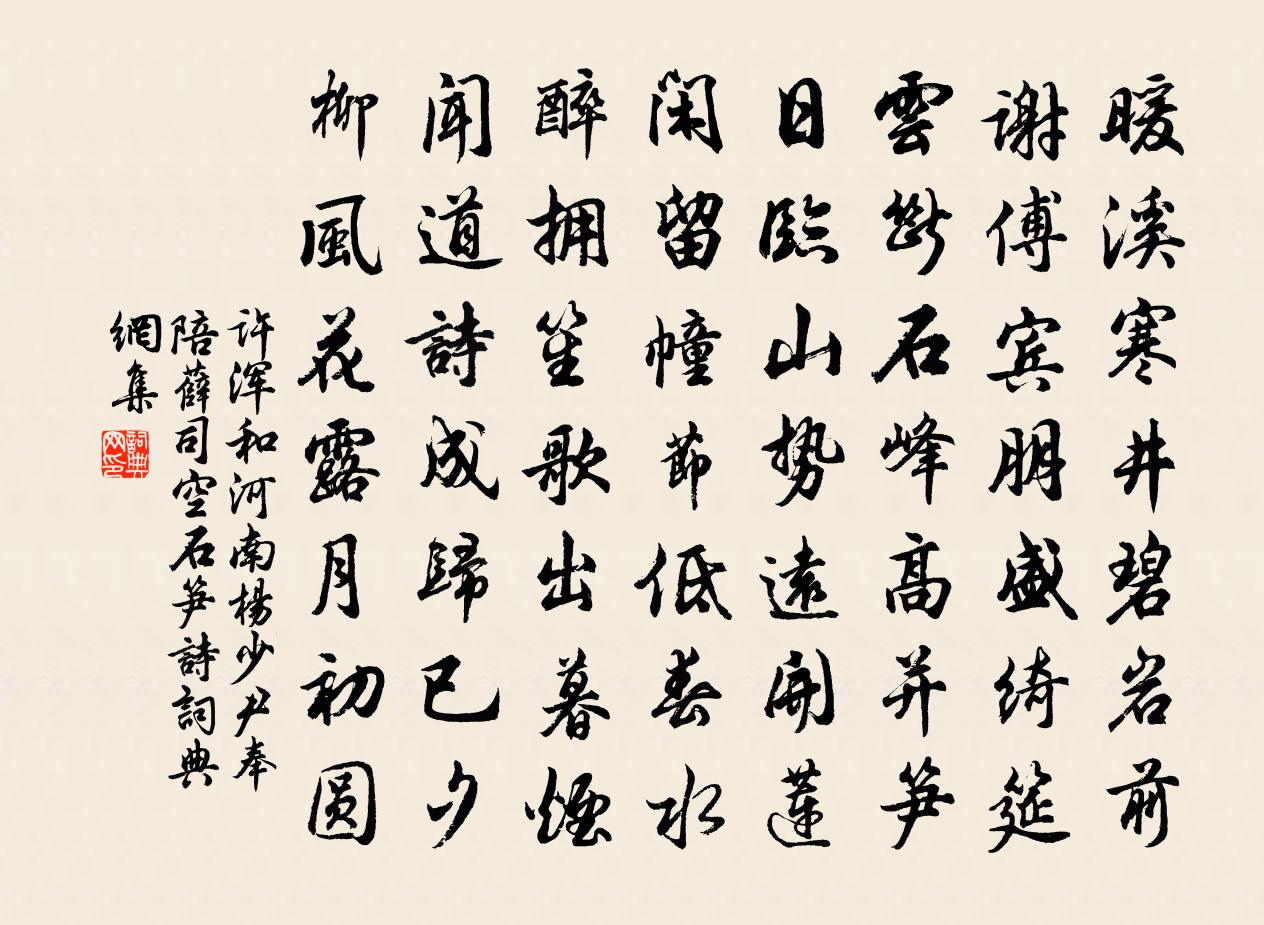 暖溪寒井碧岩前
謝傅宾朋盛綺筵
雲斷石峰高并笋
日臨山势遠開蓮
閑留幢節低春水
醉拥笙歌出暮煙
聞道詩成歸已夕
柳風花露月初圆
許浑和河南楊少尹奉
陪薛司空石笋詩詞典
網集
詞典网印